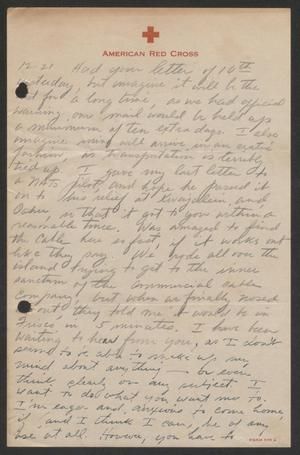 AMERICAN RED CROSS
12-21 Had your letter of 10th
yesterday, but imagine it will be the
last for a long time, as we had official
warning, our mail would be held up
a minimum of ten extra days. I also
imagine mine will arrive in an erratic
fashion, as transportation is terribly
tied up. I gave my last letter to
a NATS pilot and hope he passed it
on to his relief at Kwajalein, and
Oahu, so that it got to you within a
reasonable time. Was amazed to find
the cable here so fast, if it works out
like they say. We rode all over the
island trying to get to the inner
sanctum of the Commercial Cable
Company, but when we finally nosed
it out they told me it would be in
Frisco in 5 minutes. I have been
waiting to hear from you, as I don't
seem to be able to make up my
mind about anything — or even
think clearly on any subject. I
want to do what you want me to.
I'm eager and anxious to come home,
if, and I think I can, be of any
use at all. However, you have to